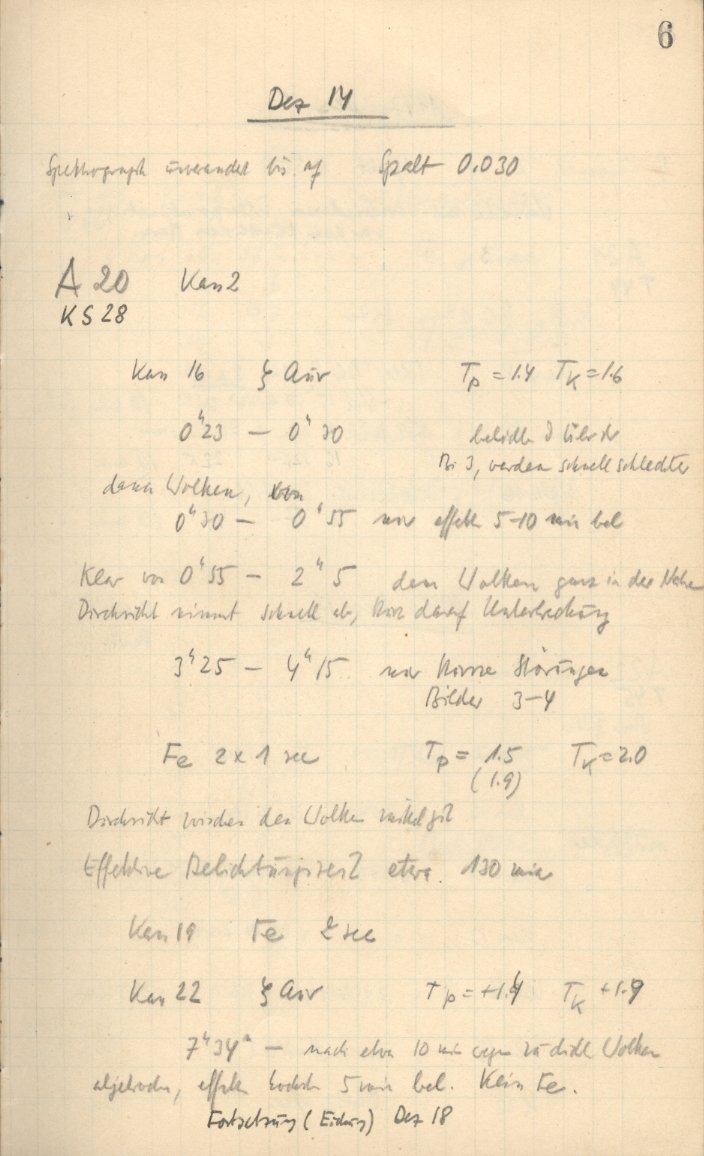 6
Dez 14
Spektrograph unverändert bis auf Spalt 0.030
A 20 Kass 2
KS 28
Kass 16 ζ Aur T_P = 1.4 T_K = 1.6
0ʰ23 — 0ʰ30
Bi 3, werden schnell schlechter
dann Wolken, von
0ʰ30 — 0ʰ55 nur effekt 5-10 min bel
Klar von 0ʰ55 — 2ʰ5 dann Wolken ganz in der Nähe
Durchsicht nimmt schnell ab, kurz darauf Unterbrechung
3ʰ25 — 4ʰ15 nur kurze Störungen
Bilder 3-4
Fe 2 x 1 sec T_P = 1.5 T_K = 2.0
(1.9)
Durchsicht zwischen den Wolken mittelgut
Effektive Belichtungszeit etwa 130 min
Kass 19 Fe 2 sec
Kass 22 ζ Aur T_P = +1.4 T_K +1.9
7ʰ34ᵐ — nach etwa 10 min wegen zu dicht Wolken
abgebrochen, effekt höchste 5 min bel. Kein Fe.
Fortsetzung (Eichung) Dez 18